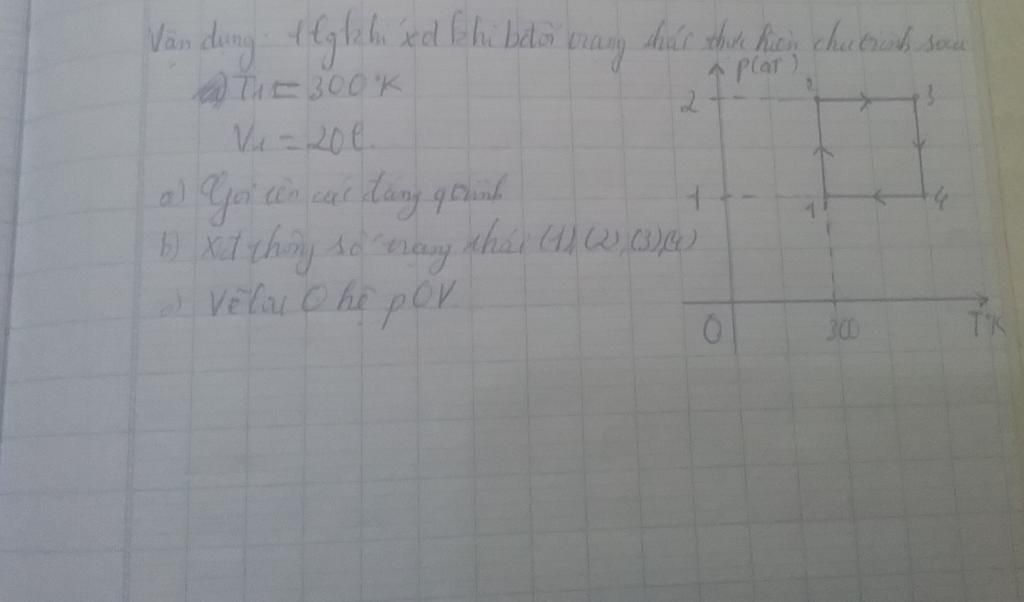 Vận dụng: 1 lg khí xđ khi bđổi trạng thái thực hiện chu trình sau
T1 = 300°K
V1 = 20l.
a) Gọi tên các đẳng qtrình
b) Xđ thông số trạng thái (1), (2), (3), (4)
c) Vẽ lại ở hệ pOV
p(at)
2
2
3
1
1
4
O
300
T°K